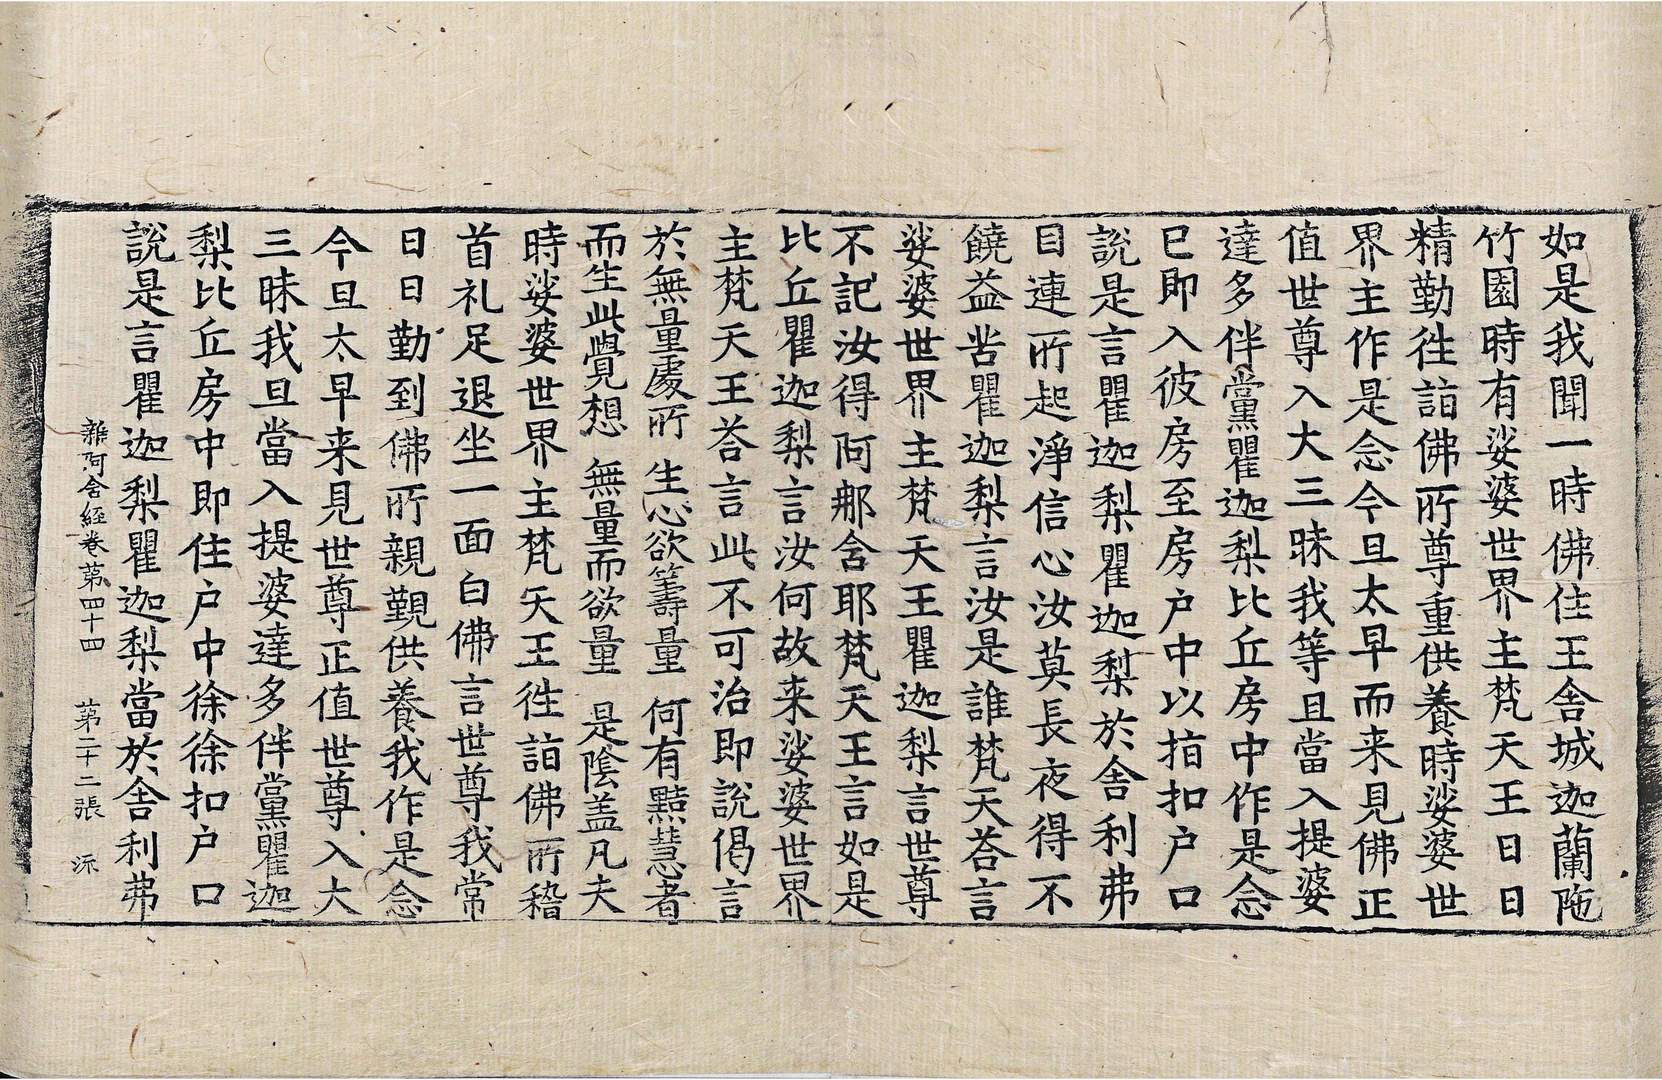 如是我聞一時佛住王舍城迦蘭陁
竹園時有娑婆世界主梵天王日日
精勤往詣佛所尊重供養時娑婆世
界主作是念今旦太早而来見佛正
值世尊入大三昧我等且當入提婆
達多伴黨瞿迦梨比丘房中作是念
已即入彼房至房户中以指扣户口
說是言瞿迦梨瞿迦梨於舍利弗
目連所起淨信心汝莫長夜得不
饒益苦瞿迦梨言汝是誰梵天荅言
娑婆世界主梵天王瞿迦梨言世尊
不記汝得阿那含耶梵天王言如是
比丘瞿迦梨言汝何故来娑婆世界
主梵天王荅言此不可治即說偈言
於無量處所 生心欲籌量 何有黠慧者
而生此覺想 無量而欲量 是陰盖凡夫
時娑婆世界主梵天王往詣佛所稽
首礼足退坐一面白佛言世尊我常
日日勤到佛所親覲供養我作是念
今旦太早来見世尊正值世尊入大
三昧我且當入提婆達多伴黨瞿迦
梨比丘房中即住户中徐徐扣户口
說是言瞿迦梨瞿迦梨當於舍利弗
雜阿含經卷第四十四 第二十二張 㳅